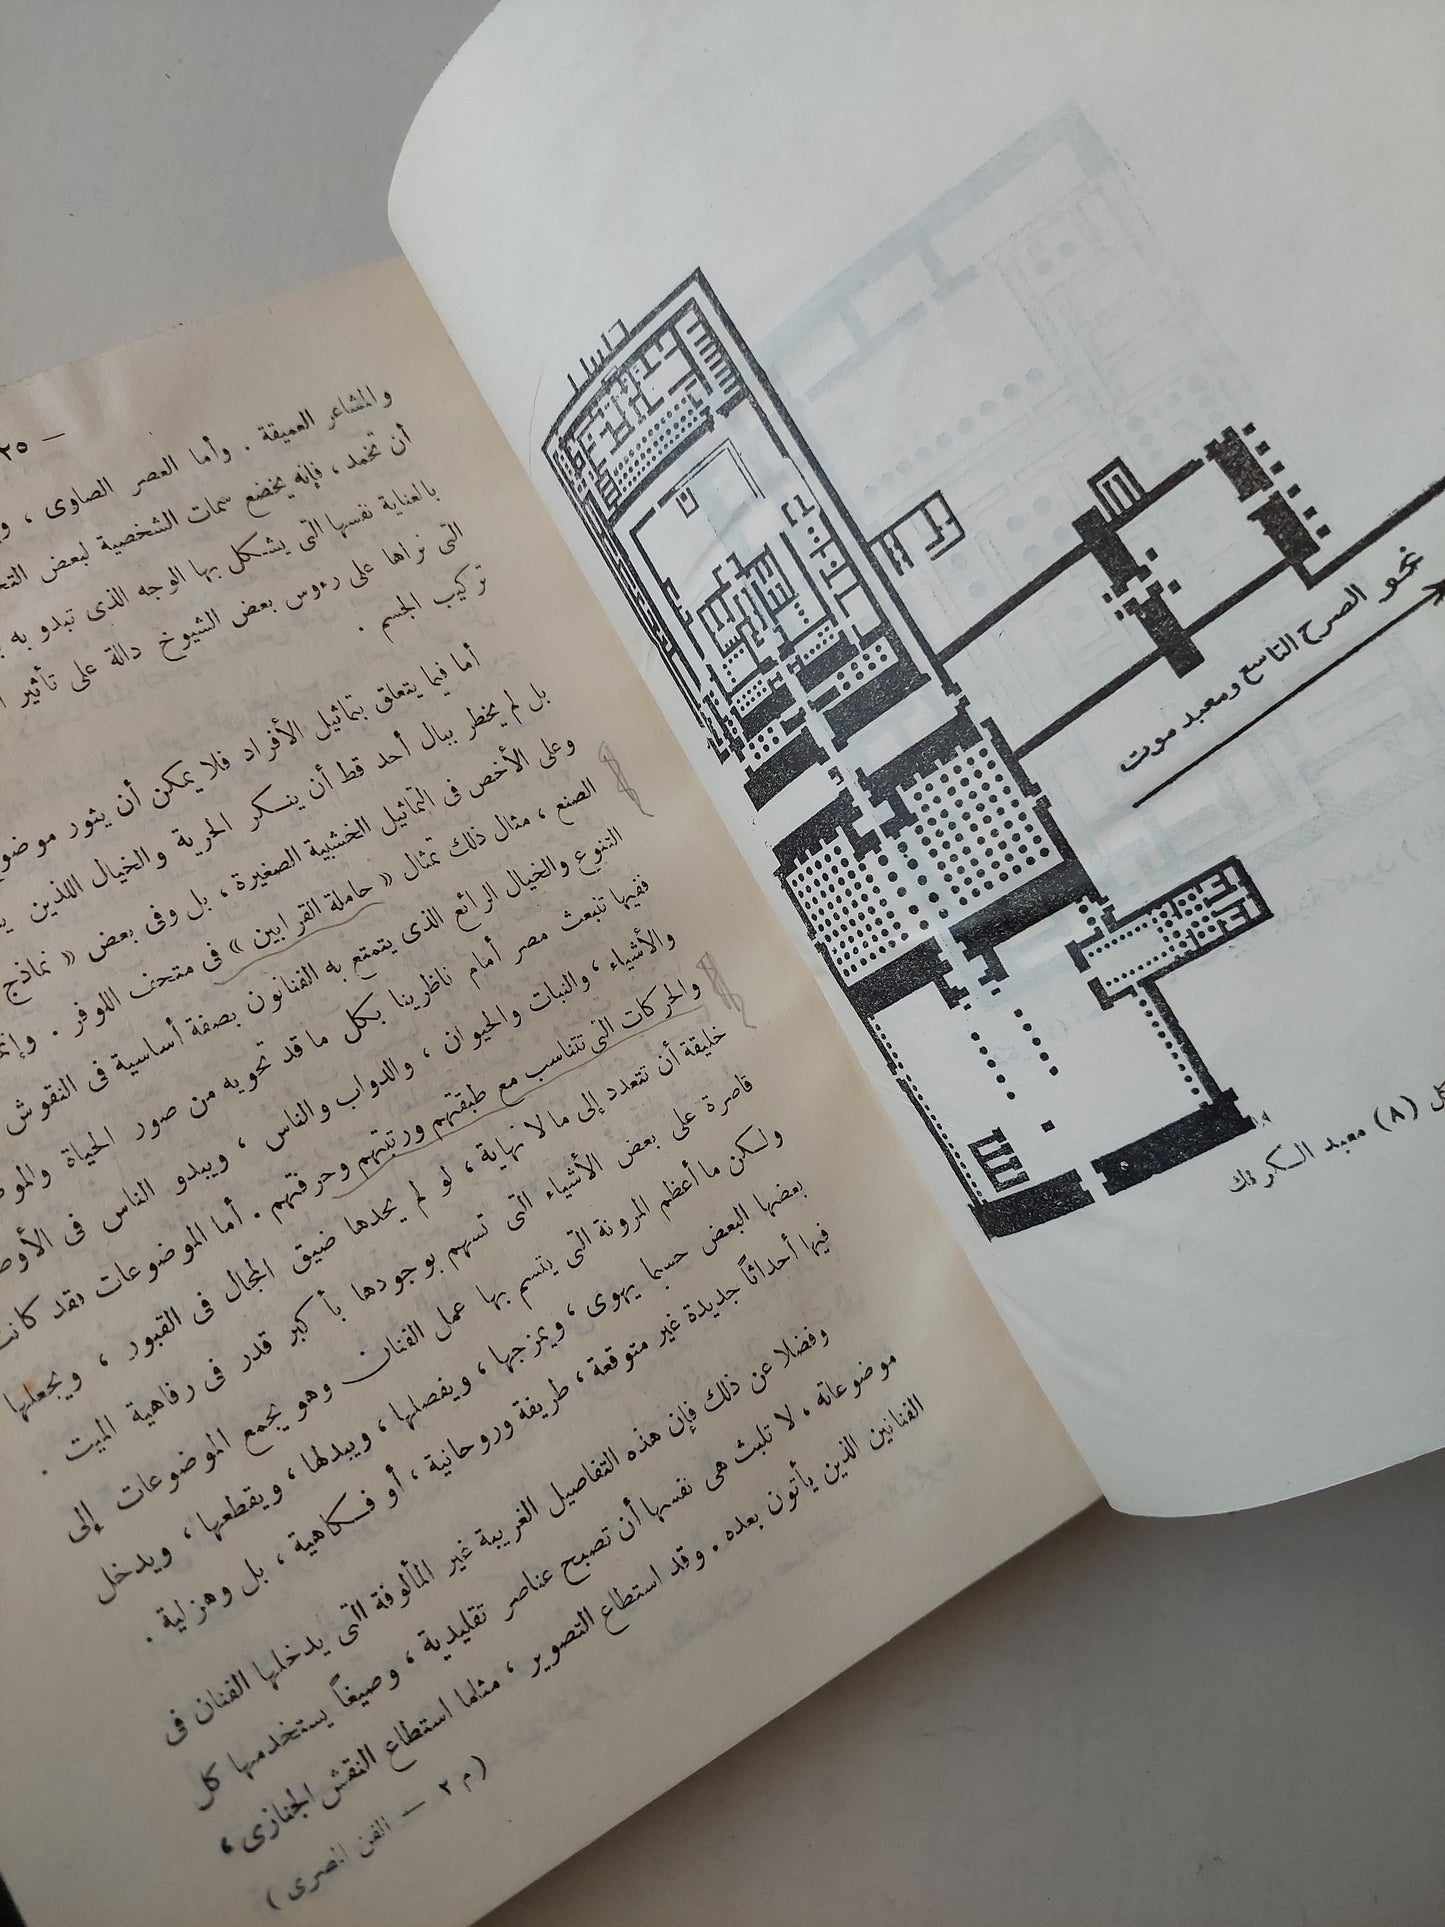 — ٢٥
والمشاعر العميقة . وأما العصر الصاوى ،
أن تخمد ، فإنه يخضع سمات الشخصية لبعض
بالعناية نفسها التى يشكل بها الوجه الذى تبدو به
التى نراها على رءوس بعض الشيوخ دالة على تأثير
تركيب الجسم .
أما فيما يتعلق بتماثيل الأفراد فلا يمكن أن يثور
بل لم يخطر ببال أحد قط أن ينكر الحرية والخيال اللذين
وعلى الأخص فى التماثيل الخشبية الصغيرة ، بل وفى بعض « نماذج
الصنع ، مثال ذلك تمثال « حاملة القرابين » فى متحف اللوفر .
التنوع والخيال الرائع الذى يتمتع به الفنانون بصفة أساسية فى النقوش
ففيها تنبعث مصر أمام ناظرينا بكل ما قد تحويه من صور الحياة
والأشياء ، والنبات والحيوان ، والدواب والناس ، ويبدو الناس فى
والحركات التى تتناسب مع طبقتهم ورتبتهم وحرفتهم . أما الموضوعات فقد كانت
خليقة أن تتعدد إلى ما لا نهاية ، لو لم يحدها ضيق المجال فى القبور ، ويجعلها
قاصرة على بعض الأشياء التى تسهم بوجودها بأكبر قدر فى رفاهية الميت .
ولكن ما أعظم المرونة التى يتسم بها عمل الفنان وهو يجمع الموضوعات إلى
بعضها البعض حسبما يهوى ، ويمزجها ، ويفصلها ، ويبدلها ، ويقطعها ، ويدخل
فيها أحداثاً جديدة غير متوقعة ، طريفة وروحانية ، أو فكاهية ، بل وهزلية .
وفضلا عن ذلك فإن هذه التفاصيل الغريبة غير المألوفة التى يدخلها الفنان فى
موضوعاته ، لا تلبث هى نفسها أن تصبح عناصر تقليدية ، وصيغاً يستخدمها كل
الفنانين الذين يأتون بعده . وقد استطاع التصوير ، مثلما استطاع النقش الجنازى ،
( م ٢ — الفن المصرى )
نحو الصرح التاسع ومعبد موت
(٨) معبد الكرنك